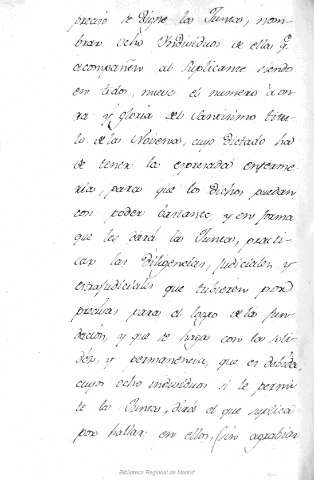 preciso se digne la Junta, nom-
brar ocho Individuos de ellas q.
acompañen al Suplicante siendo
en todos, nueve el numero à on-
rra y gloria del Santisimo titu-
lo de la Novena, cuyo dictado ha
de tener la expresada enferme-
ria, para que los dichos puedan
con poder bastante, y en forma
que les dará la Junta, practi-
car las diligencias, judiciales y
extrajudiciales que tubieren por
precisas para el logro de la fun-
dacion, y que se haga con la soli-
dez, y permanencia, que es debida,
cuyos ocho individuos si le permi-
te la Junta, dirá el que suplica
por hallar en ellos, (sin agrabiar
Biblioteca Regional de Madrid